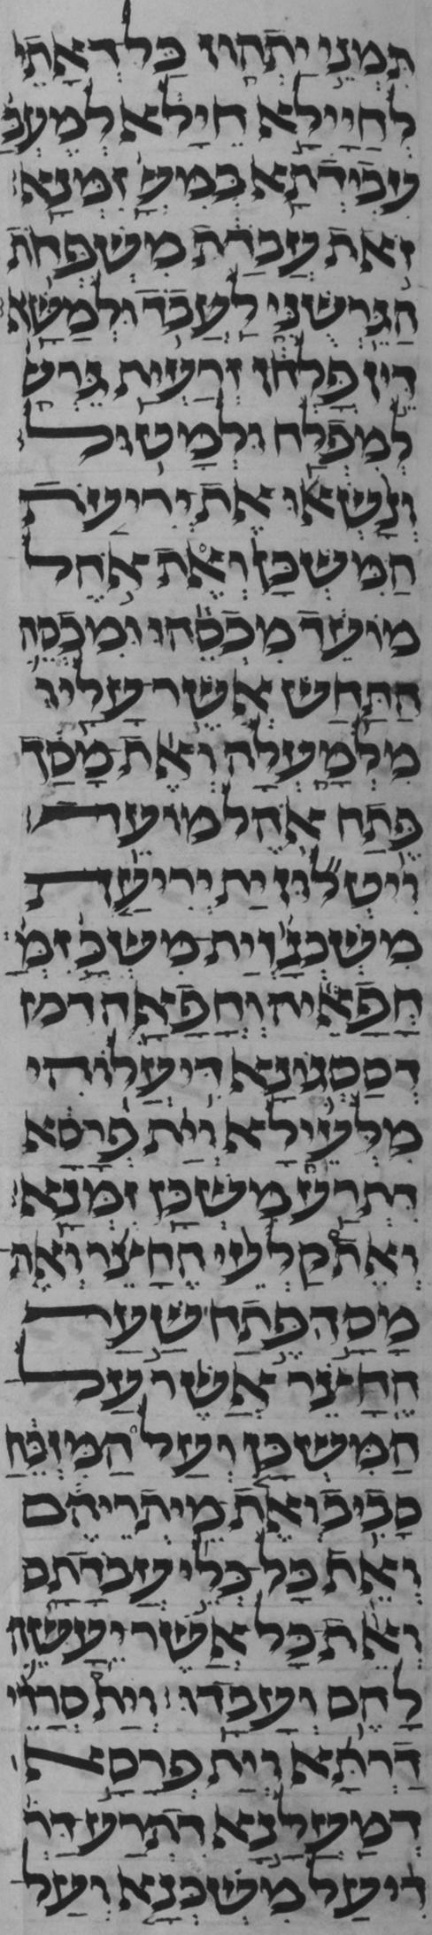 תִמְנֵי יִתְהוֹן כָּל דְאָתֵי
לְחֵיילָא חֵילָא לְמֶעְבַּ
עֲבִידְתָא בְמַשׁ זִמְנָא׃
זֹאת עֲבֹדַת מִשְׁפְּחֹת
הַגֵּרְשֻׁנִּי לַעֲבֹד וּלְמַשָּׂא׃
דֵין פָּלְחַן זַרְעֲיַת גֵּרְשׁ
לְמִפְלַח וּלְמִטּוּל׃
וְנָשְׂאוּ אֶת יְרִיעֹת
הַמִּשְׁכָּן וְאֶת אֹהֶל
מוֹעֵד מִכְסֵהוּ וּמִכְסֵה
הַתַּחַשׁ אֲשֶׁר עָלָיו
מִלְמָעְלָה וְאֶת מָסַךְ
פֶּתַח אֹהֶל מוֹעֵד׃
וְיִטְּלוּן יָת יְרִיעָת
מַשְׁכְּנָא וְיָת מַשְׁכַּן זִמְ
חֻפָאֵיהּ וְחֻפָאָה דִמִן
דְסַסְגּוֹנָא דִי עֲלוֹהִי
מִלְּעֵילָא וְיָת פְּרָסָא
דִתְרַע מַשְׁכַּן זִמְנָא׃
וְאֵת קַלְעֵי הֶחָצֵר וְאֶת
מָסַךְ פֶּתַח שַׁעַר
הֶחָצֵר אֲשֶׁר עַל
הַמִּשְׁכָּן וְעַל הַמִּזְבֵּחַ
סָבִיב וְאֵת מֵיתְרֵיהֶם
וְאֶת כָּל כְּלֵי עֲבֹדָתָם
וְאֵת כָּל אֲשֶׁר יֵעָשֶׂה
לָהֶם וְעָבָדוּ׃ וְיָת סְרָדֵי
דָרְתָא וְיָת פְּרָסָא
דְמַעֲלָנָא דִתְרַע דָּר
דִי עַל מַשְׁכְּנָא וְעַל